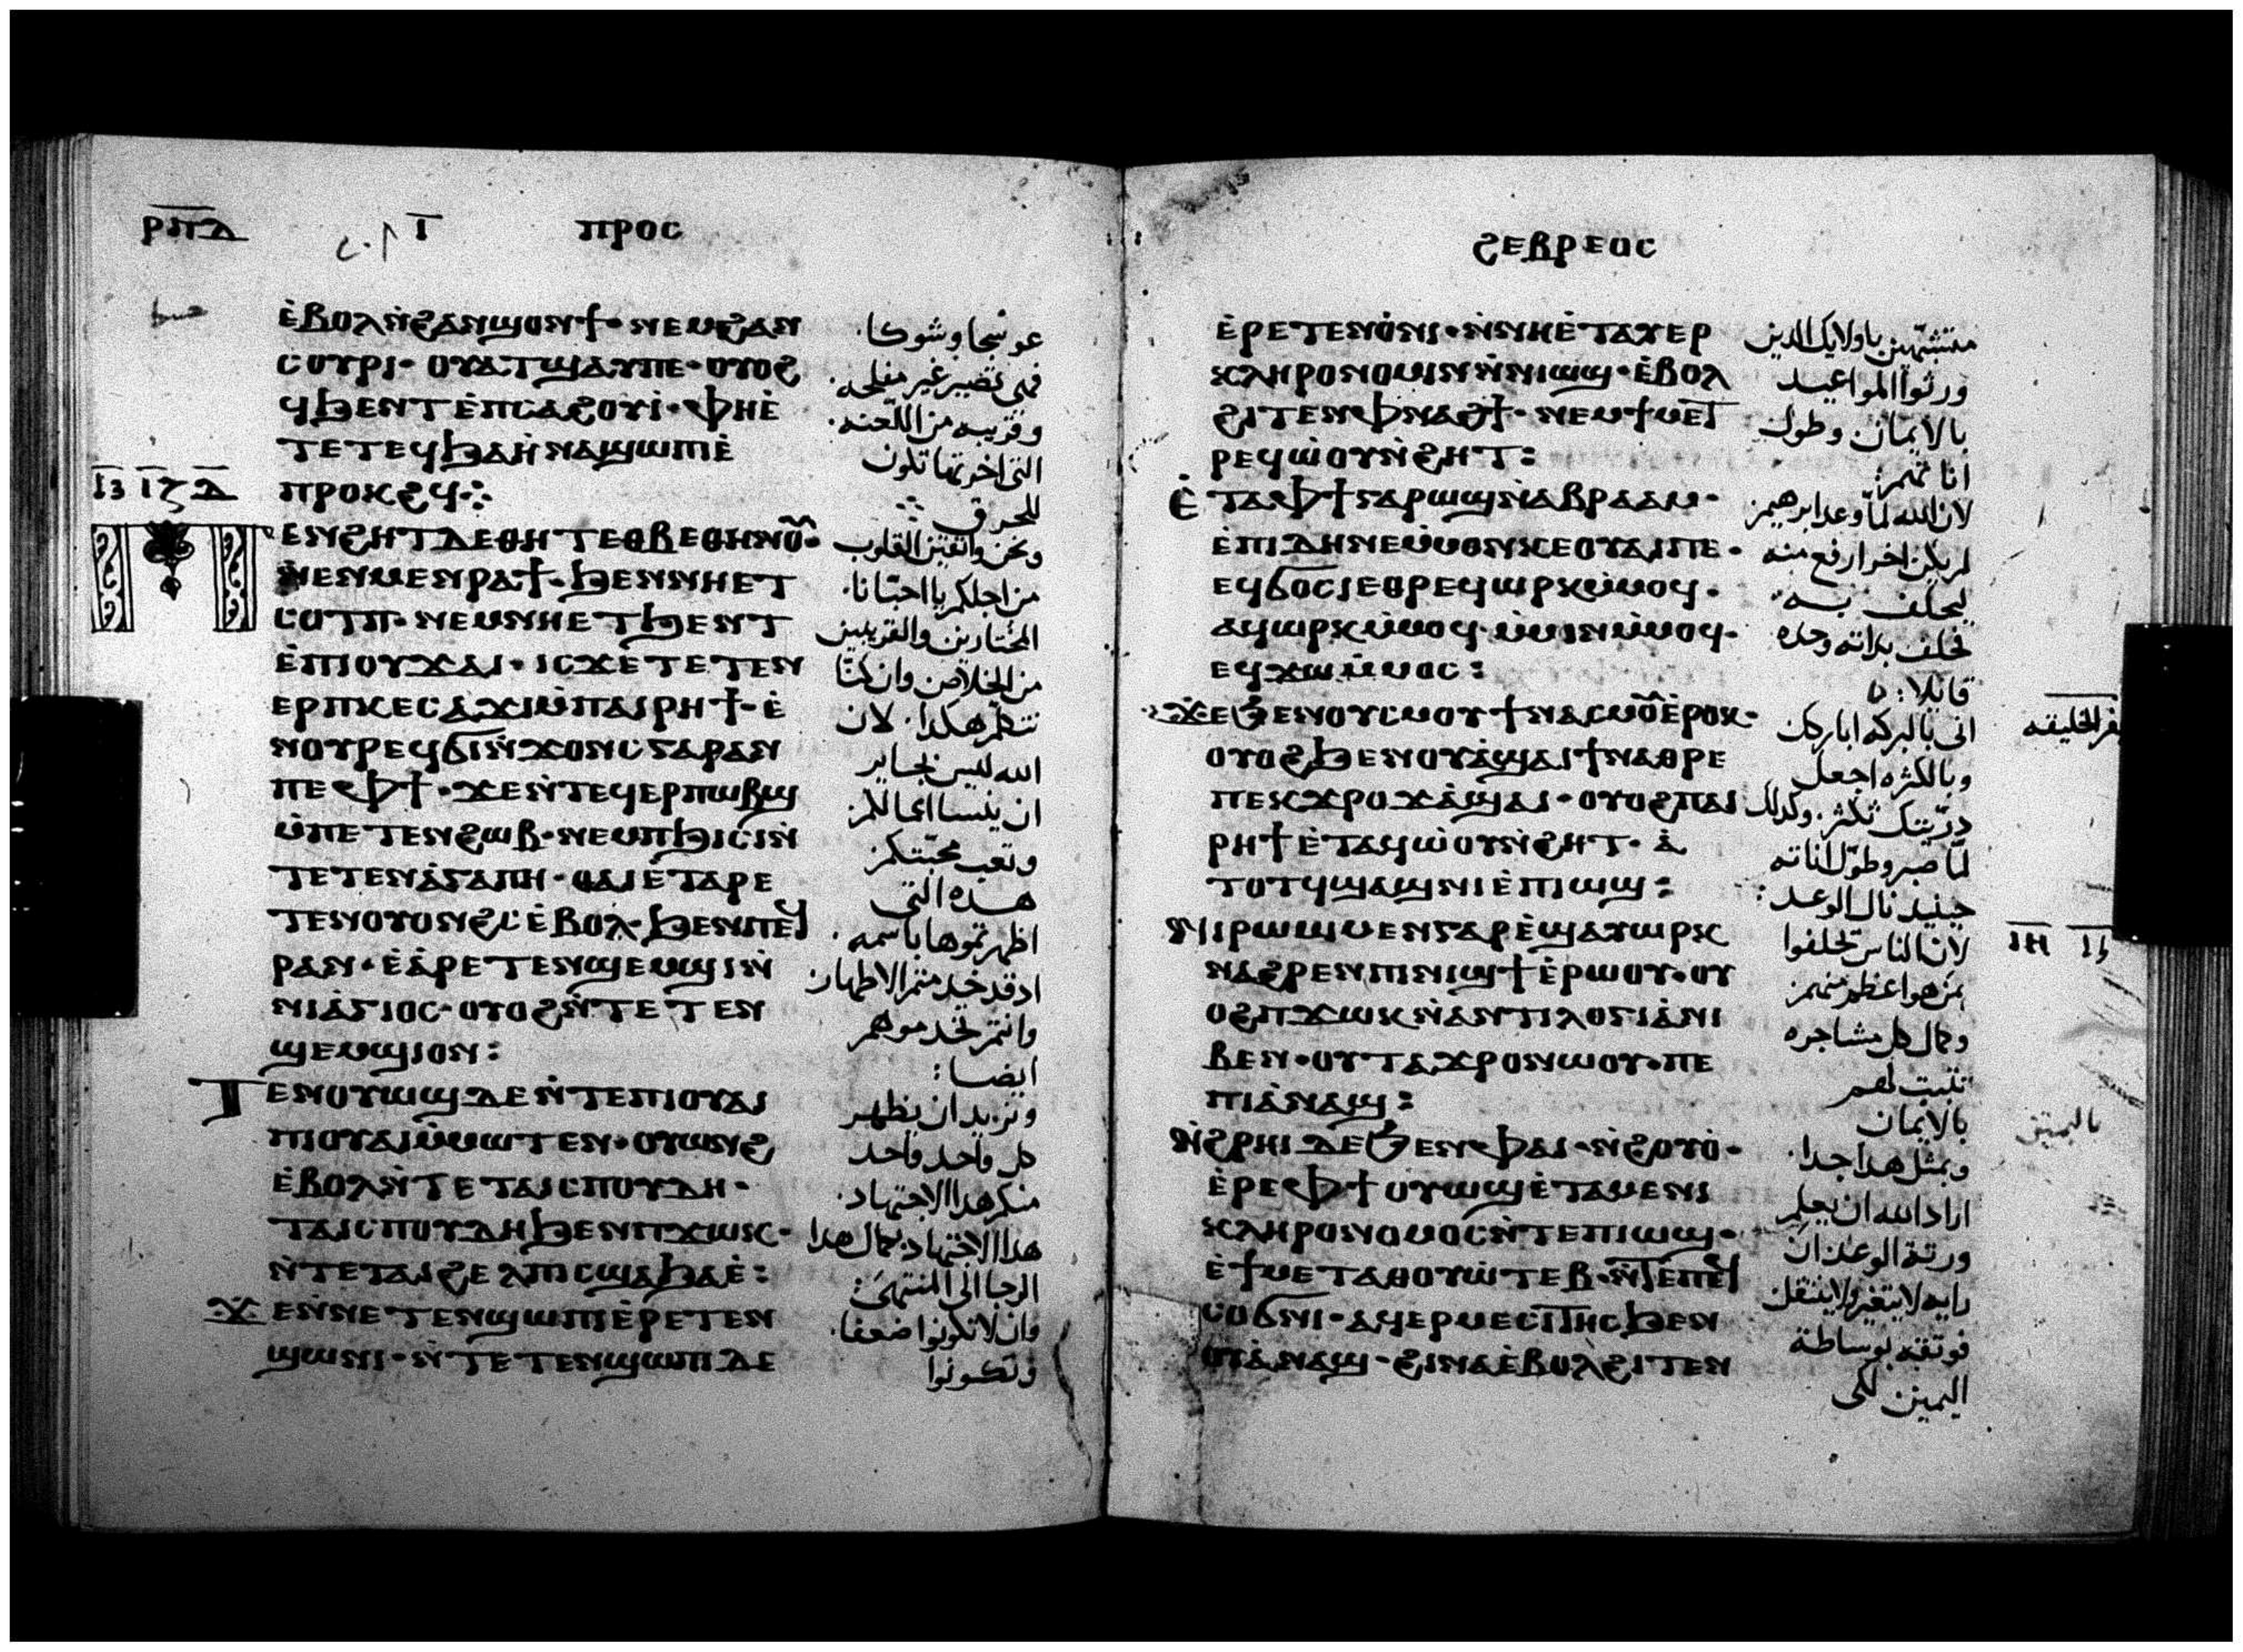 ⲣⲡⲇ
ⲡⲣⲟⲥ
ⲉ̀ⲃⲟⲗⲛ̀ϩⲁⲛϣⲟⲛϯ· ⲛⲉⲙϩⲁⲛ
ⲥⲟⲩⲣⲓ· ⲟⲩⲁⲧϣⲁⲩⲡⲉ· ⲟⲩⲟϩ
ϥϧⲉⲛⲧⲉ̀ⲡⲥⲁϩⲟⲩⲓ̀· ⲫⲏⲉ̀
ⲧⲉⲧⲉϥϧⲁⲏ̀ⲛⲁϣⲱⲡⲓⲉ̀
ⲡⲣⲟⲕϩϥ⁘
ⲉⲛϩⲏⲧⲇⲉⲑⲏⲧⲉⲑⲃⲉⲑⲏⲛⲟ̅
ⲛⲉⲛⲙⲉⲛⲣⲁϯ· ϧⲉⲛⲛⲏⲉⲧ
ⲥⲟⲧⲡ· ⲛⲉⲙⲛⲏⲉⲧϧⲉⲛⲧ
ⲉ̀ⲡⲓⲟⲩϫⲁⲓ· ⲓⲥϫⲉⲧⲉⲧⲉⲛ
ⲉⲣⲡⲕⲉⲥⲁϫⲓⲙ̀ⲡⲁⲓⲣⲏϯ· ⲉ̀
ⲛⲟⲩⲣⲉϥϭⲓⲛ̀ϫⲟⲛⲥⲅⲁⲣⲁⲛ
ⲡⲉⲫϯ· ϫⲉⲛ̀ⲧⲉϥⲉⲣⲡⲱⲃϣ
ⲙ̀ⲡⲉⲧⲉⲛϩⲱⲃ· ⲛⲉⲙⲡϧⲓⲥⲓⲛ̀
ⲧⲉⲧⲉⲛⲁ̀ⲅⲁⲡⲏ· ⲑⲁⲓⲉ̀ⲧⲁⲣⲉ
ⲧⲉⲛⲟⲩⲟⲛϩⲥ̀ⲉ̀ⲃⲟⲗ· ϧⲉⲛⲡⲉϥ
ⲣⲁⲛ· ⲉ̀ⲁ̀ⲣⲉⲧⲉⲛϣⲉⲙϣⲓⲛ̀
ⲛⲓⲁ̀ⲅⲓⲟⲥ· ⲟⲩⲟϩⲛ̀ⲧⲉⲧⲉⲛ
ϣⲉⲙϣⲓⲟⲛ:
ⲧⲉⲛⲟⲩⲱϣⲇⲉⲛ̀ⲧⲉⲡⲓⲟⲩⲁⲓ
ⲡⲓⲟⲩⲁⲓⲙ̀ⲙⲱⲧⲉⲛ· ⲟⲩⲱⲛϩ
ⲉ̀ⲃⲟⲗⲛ̀ⲧⲉⲧⲁⲓⲥⲡⲟⲩⲇⲏ·
ⲧⲁⲓⲥⲡⲟⲩⲇⲏϧⲉⲛⲡϫⲱⲕ·
ⲛ̀ⲧⲉⲧⲁⲓϩⲉⲗⲡⲓⲥϣⲁϧⲁⲉ̀:
ϫⲉⲛ̀ⲛⲉⲧⲉⲛϣⲱⲡⲓⲉ̀ⲣⲉⲧⲉⲛ
ϣⲱⲛⲓ· ⲛ̀ⲧⲉⲧⲉⲛϣⲱⲡⲓⲇⲉ
عوسجا وشوكا·
فهى تصير غير مفلحه·
وقريبه من اللعنه·
التى اخرتها تكون
للحرق
ونحن واثقين القلوب
من اجلكم يا احبانا·
المختارين والقريبين
من الخلاص وان كنا
نتكلم هكدا· لان
الله ليس بجاير
ان ينسا اعمالكم
وتعب محبتكم
هده التى
اظهرتموها باسمه·
ادقد خدمتم الاطهار
وانتم تخدموهم
ايضا:
ونريد ان يظهر
كل واحد واحد
منكم هدا الاجتهاد·
هدا الاجتهاد بكمال هدا
الرجا الى المنتهى:
وان لا تكونوا ضعفا·
وتكونوا
ϩⲉⲃⲣⲉⲟⲥ
ⲉ̀ⲣⲉⲧⲉⲛⲟ̀ⲛⲓ· ⲛ̀ⲛⲏⲉ̀ⲧⲁⲩⲉⲣ
ⲕⲗⲏⲣⲟⲛⲟⲙⲓⲛⲛ̀ⲛⲓⲱϣ· ⲉ̀ⲃⲟⲗ
ϩⲓⲧⲉⲛⲫⲛⲁϩϯ· ⲛⲉⲙϯⲙⲉⲧ
ⲣⲉϥⲱ̀ⲟⲩⲛ̀ϩⲏⲧ:
ⲉ̀ⲧⲁⲫϯⲅⲁⲣⲱϣⲛ̀ⲁⲃⲣⲁⲁⲙ·
ⲉ̀ⲡⲓⲇⲏⲛⲉⲙ̀ⲙⲟⲛⲕⲉⲟⲩⲁⲓⲡⲉ·
ⲉϥϭⲟⲥⲓⲉⲑⲣⲉϥⲱⲣⲕⲙ̀ⲙⲟϥ·
ⲁϥⲱⲣⲕⲙ̀ⲙⲟϥ· ⲙ̀ⲙⲓⲛⲙ̀ⲙⲟϥ·
ⲉϥϫⲱⲙ̀ⲙⲟⲥ:
ϫⲉϧⲉⲛⲟⲩⲥⲙⲟⲩϯⲛⲁⲥⲙⲟ̅ⲉ̀ⲣⲟⲕ·
ⲟⲩⲟϩϧⲉⲛⲟⲩⲁ̀ϣⲁⲓϯⲛⲁⲑⲣⲉ
ⲡⲉⲕϫⲣⲟϫⲁ̀ϣⲁⲓ· ⲟⲩⲟϩⲡⲁⲓ
ⲣⲏϯⲉ̀ⲧⲁϥⲱ̀ⲟⲩⲛ̀ϩⲏⲧ· ⲁ̀
ⲧⲟⲧϥϣⲁϣⲛⲓⲉ̀ⲡⲓⲱϣ:
ⲛⲓⲣⲱⲙⲓⲙⲉⲛⲅⲁⲣⲉ̀ϣⲁⲩⲱⲣⲕ
ⲛⲁϩⲣⲉⲛⲡⲓⲛⲓϣϯⲉ̀ⲣⲱⲟⲩ· ⲟⲩ
ⲟϩⲡϫⲱⲕⲛ̀ⲁⲛⲧⲓⲗⲟⲅⲓⲁ̀ⲛⲓ
ⲃⲉⲛ· ⲟⲩⲧⲁϫⲣⲟⲛⲱⲟⲩ· ⲡⲉ
ⲡⲓⲁ̀ⲛⲁϣ:
ⲛ̀ϩⲣⲏⲓⲇⲉϧⲉⲛⲫⲁⲓ· ⲛ̀ϩⲟⲩⲟ̀·
ⲉ̀ⲣⲉⲫϯⲟⲩⲱϣⲉ̀ⲧⲁⲙⲉⲛⲓ
ⲕⲗⲏⲣⲟⲛⲟⲙⲟⲥⲛ̀ⲧⲉⲡⲓⲱϣ·
ⲉ̀ϯⲙⲉⲧⲁⲑⲟⲩⲱ̀ⲧⲉⲃ· ⲛ̀ⲧⲉⲡⲉϥ
ⲥⲟϭⲛⲓ· ⲁϥⲉⲣⲙⲉⲥⲓⲧⲏⲥϧⲉⲛ
ⲟⲩⲁ̀ⲛⲁϣ· ϩⲓⲛⲁⲉ̀ⲃⲟⲗϩⲓⲧⲉⲛ
متشبهين باولايك الدين
ورثوا المواعيد
بالايمان وطول
اناتهم:
لان الله لما وعد ابرهيم
لم يكن اخر ارفع منه
ليحلف به·
فحلف بداته وحده
قايلا:
انى بالبركه اباركك
وبالكثره اجعل
دريتك تكثر· وكدلك
لما صبر وطول اناته
حينيد نال الوعد:
لان الناس تحلفوا
بمن هو اعظم منهم
وكمال كل مشاجره
تثبت لهم
بالايمان
وبمثل هدا جدا·
اراد الله ان يعلم
ورثة الوعد ان
رايه لا يتغير ولا ينتقل
فوثقه بوساطة
اليمين لكى
سفر الخليقه
ⲓⲏ
باليمين